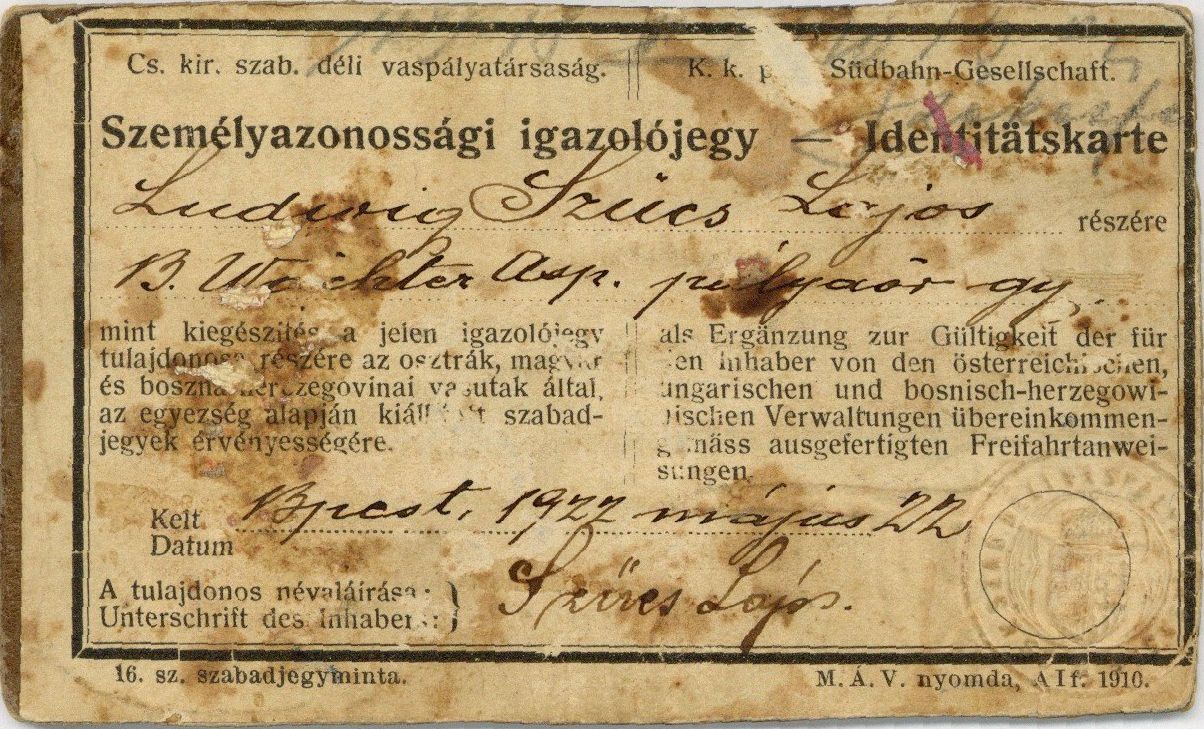 Cs. kir. szab. déli vaspályatársaság. K. k. p Südbahn-Gesellschaft.
Személyazonossági igazolójegy — Identitätskarte
Ludwig Szücs Lajos részére
B. Wächter Asp. pályaőr gy.
mint kiegészítés a jelen igazolójegy
tulajdonosa részére az osztrák, magyar
és bosznia-herczegovinai vasutak által,
az egyezség alapján kiállított szabad-
jegyek érvényességére.
als Ergänzung zur Gültigkeit der für
den Inhaber von den österreichischen,
ungarischen und bosnisch-herzegowi-
nischen Verwaltungen übereinkommen-
gemäss ausgefertigten Freifahrtanwei-
sungen.
Kelt Bpest, 1922 május 22
Datum
A tulajdonos névaláírása:
Unterschrift des Inhabers: Szücs Lajos.
16. sz. szabadjegyminta. M. Á. V. nyomda, A I f. 1910.